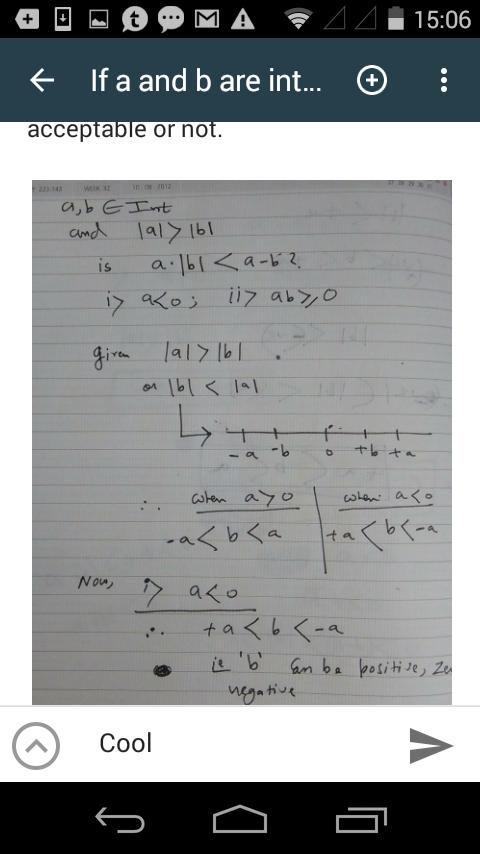 15:06
If a and b are int...
acceptable or not.
WEEK 32 10.08.2012
a,b ∈ Int
and |a|>|b|
is a·|b| < a-b?
i> a<0; ii> ab≥0
given |a|>|b|
or |b| < |a|
-a -b 0 +b +a
∴ when a>0 when a<0
-a<b<a +a<b<-a
Now, i> a<0
∴ +a<b<-a
ie 'b' can be positive, Ze
negative
Cool